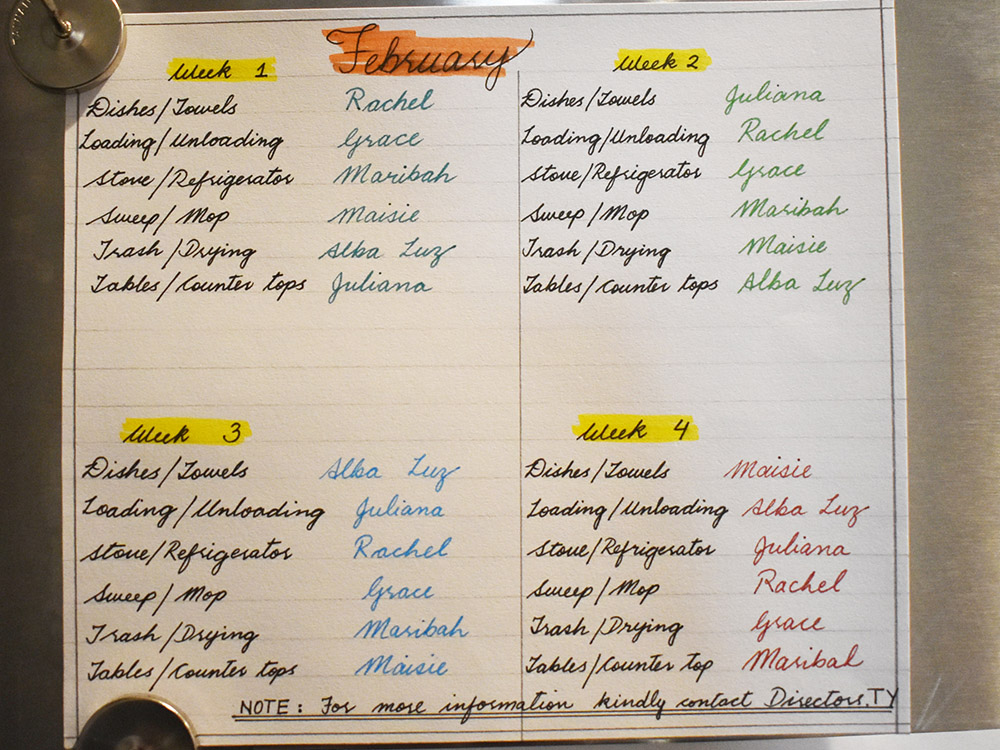 February
Week 1
Dishes/Towels Rachel
Loading/Unloading Grace
Stove/Refrigerator Maribah
Sweep/Mop Maisie
Trash/Drying Alba Luz
Tables/Counter tops Juliana
Week 2
Dishes/Towels Juliana
Loading/Unloading Rachel
Stove/Refrigerator Grace
Sweep/Mop Maribah
Trash/Drying Maisie
Tables/Counter tops Alba Luz
Week 3
Dishes/Towels Alba Luz
Loading/Unloading Juliana
Stove/Refrigerator Rachel
Sweep/Mop Grace
Trash/Drying Maribah
Tables/Counter tops Maisie
Week 4
Dishes/Towels Maisie
Loading/Unloading Alba Luz
Stove/Refrigerator Juliana
Sweep/Mop Rachel
Trash/Drying Grace
Tables/Counter top Maribah
NOTE: For more information kindly contact Directors.TY